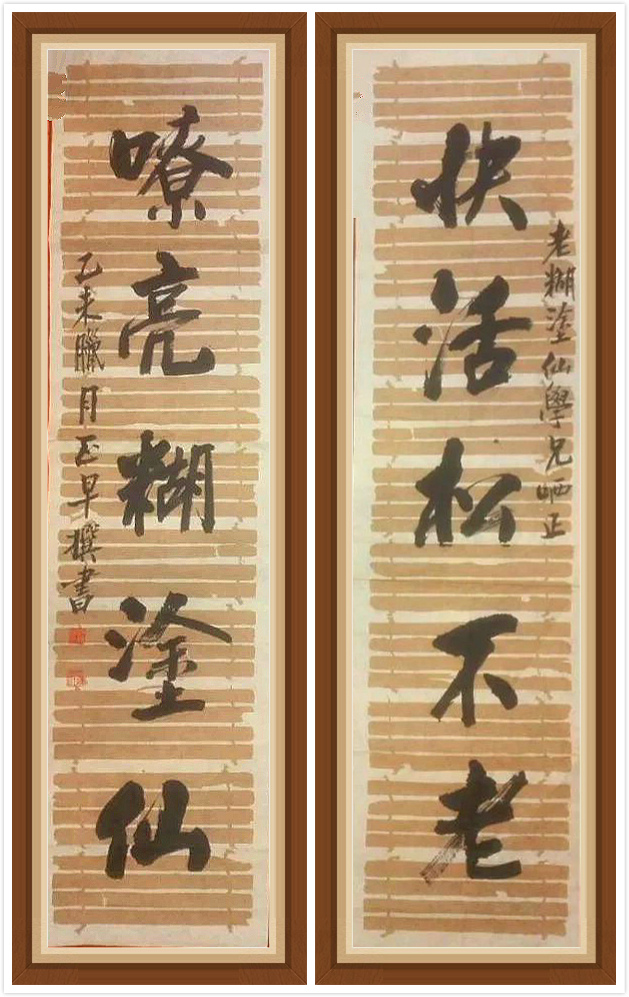 老糊塗仙學兄哂正
快活松不老
嘹亮糊塗仙
乙未臘月玉早撰書